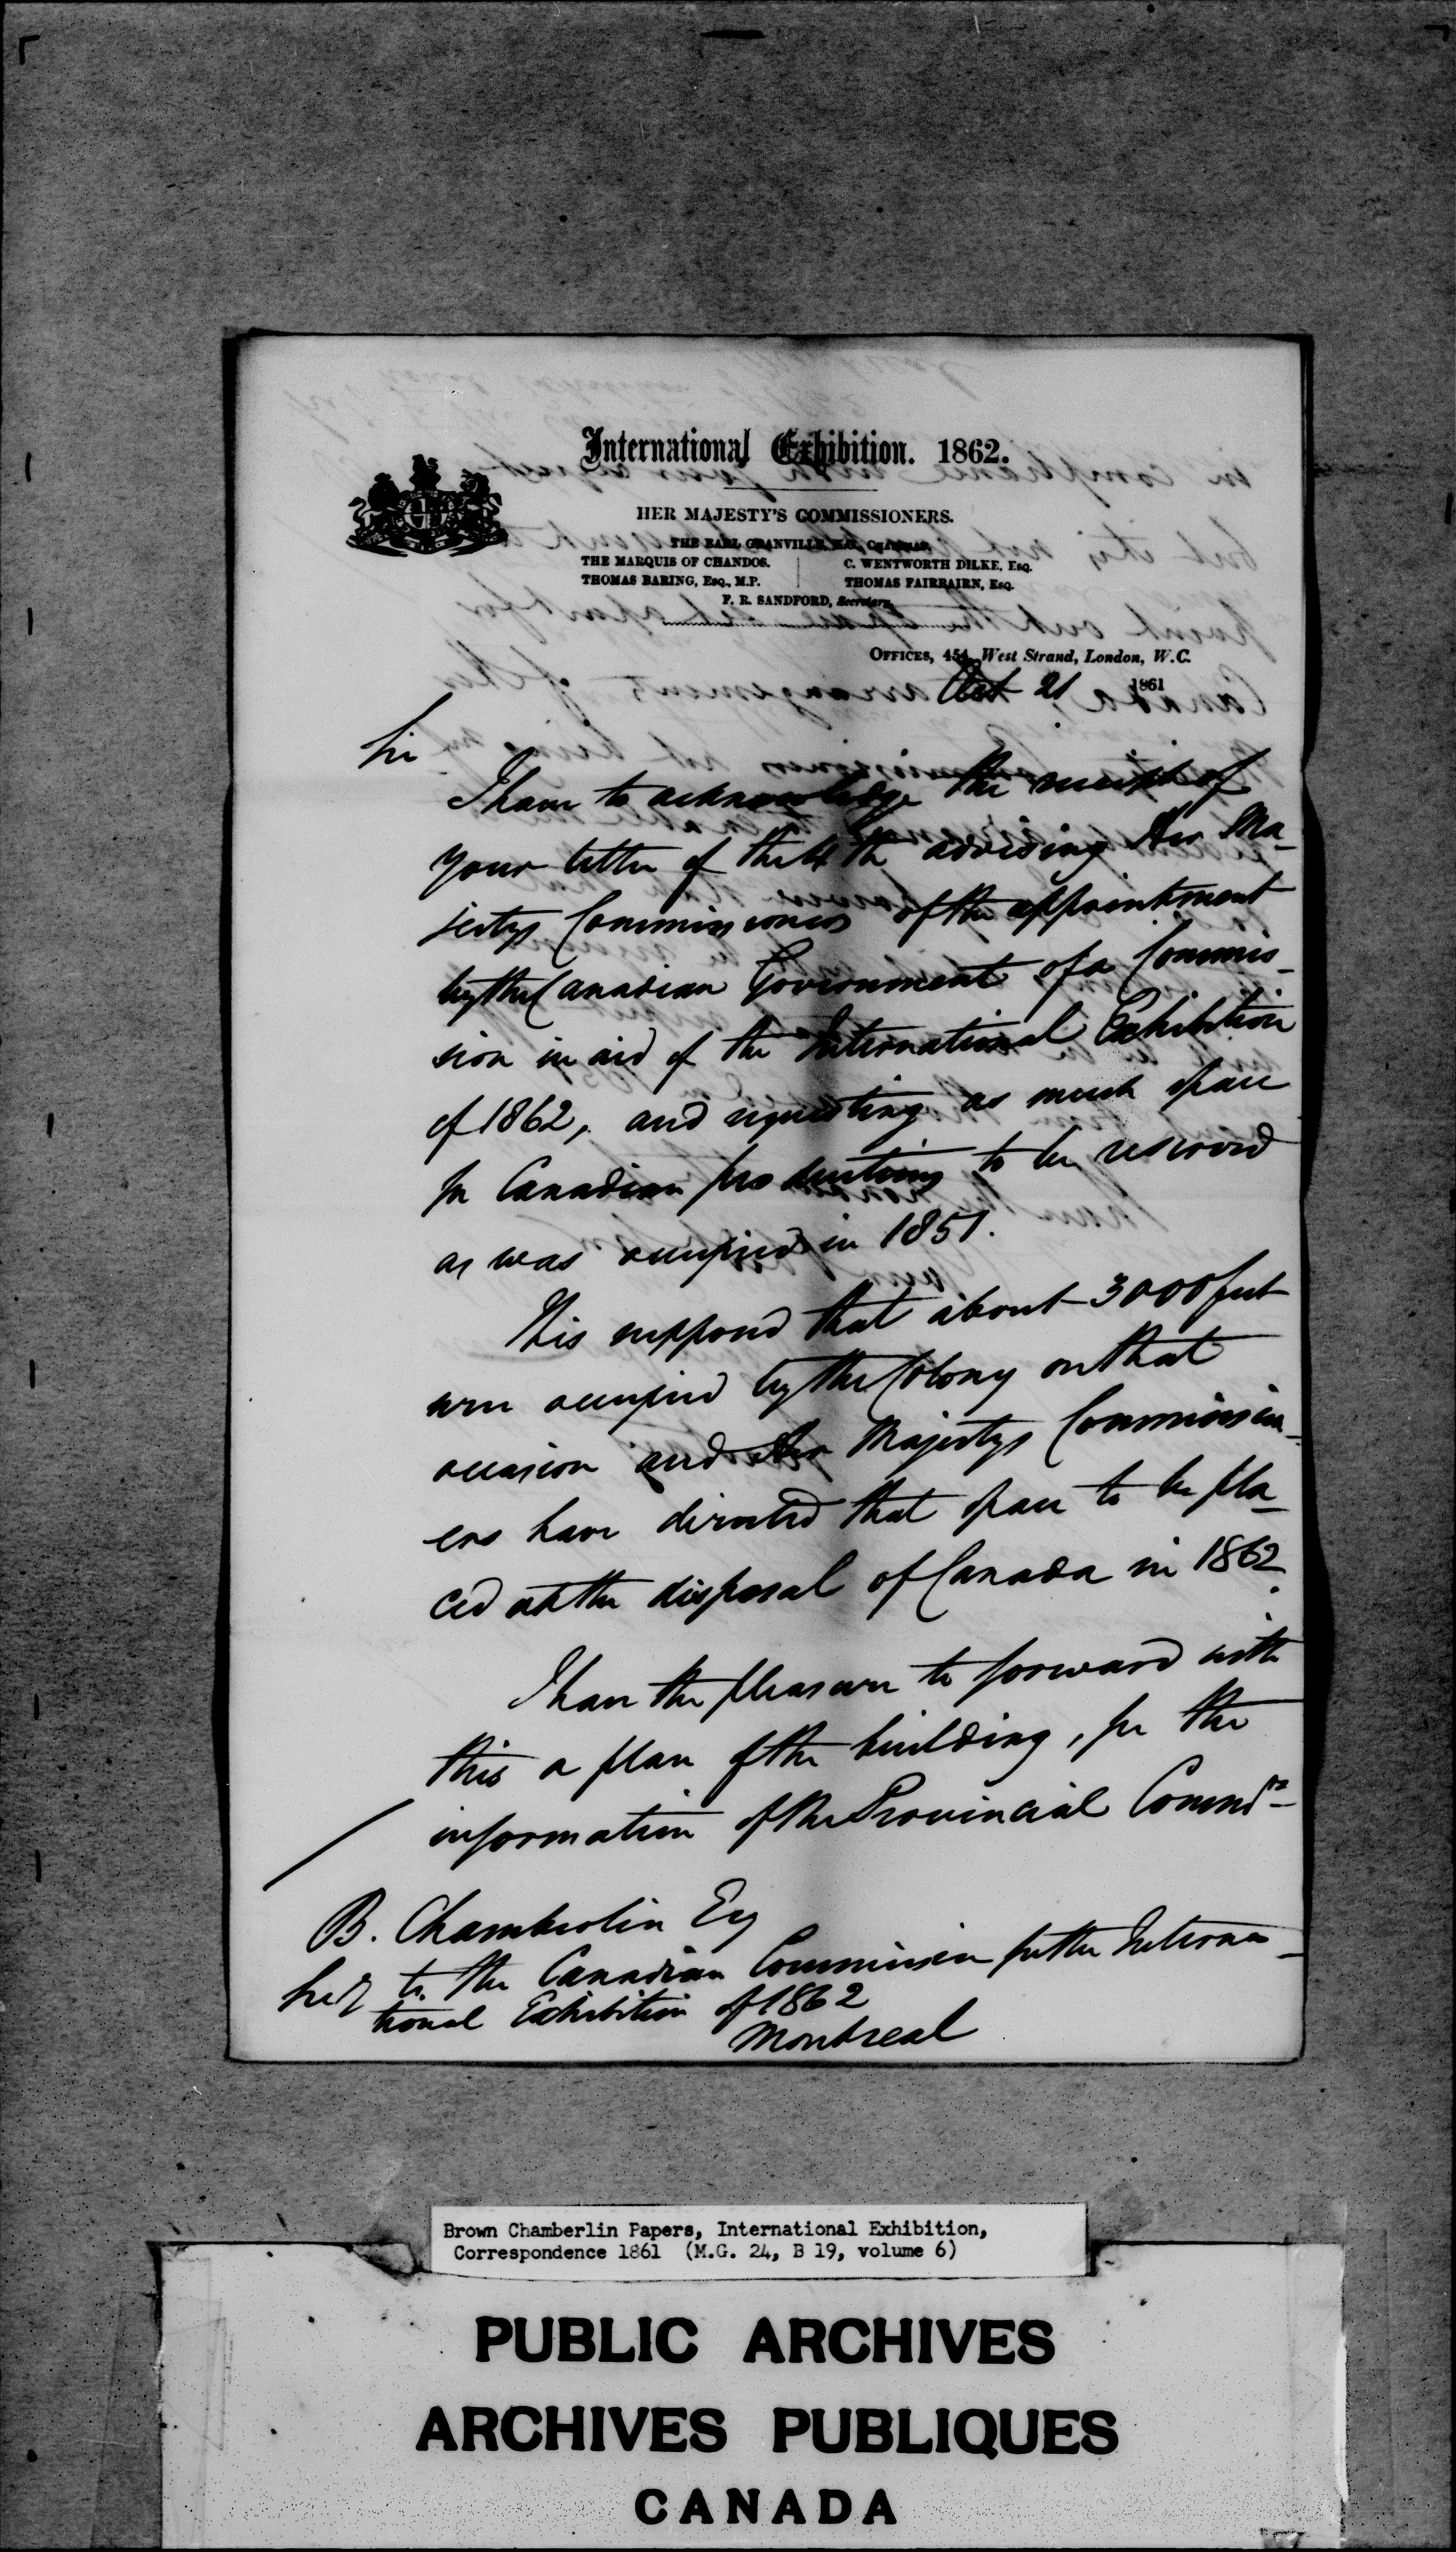 International Exhibition. 1862.
HER MAJESTY'S COMMISSIONERS.
THE EARL GRANVILLE, K.G., CHAIRMAN,
THE MARQUIS OF CHANDOS. C. WENTWORTH DILKE, ESQ.
THOMAS BARING, ESQ., M.P. THOMAS FAIRBAIRN, ESQ.
F. R. SANDFORD, Secretary.
OFFICES, 454, West Strand, London, W.C.
Oct 21 1861
Sir
I have to acknowledge the receipt of
your letter of the 4th advising Her Ma-
jestys Commissioners of the appointment
by the Canadian Government of a Commis-
sion in aid of the International Exhibition
of 1862, and requesting as much space
for Canadian productions to be reserved
as was occupied in 1851.
It is supposed that about 3000 feet
were occupied by the Colony on that
occasion and Her Majestys Commission-
ers have directed that space to be pla-
ced at the disposal of Canada in 1862.
I have the pleasure to forward with
this a plan of the building, for the
information of the Provincial Commrs
B. Chamberlin Esq
Secy to the Canadian Commission for the Interna-
tional Exhibition of 1862
Montreal
Brown Chamberlin Papers, International Exhibition,
Correspondence 1861 (M.G. 24, B 19, volume 6)
PUBLIC ARCHIVES
ARCHIVES PUBLIQUES
CANADA